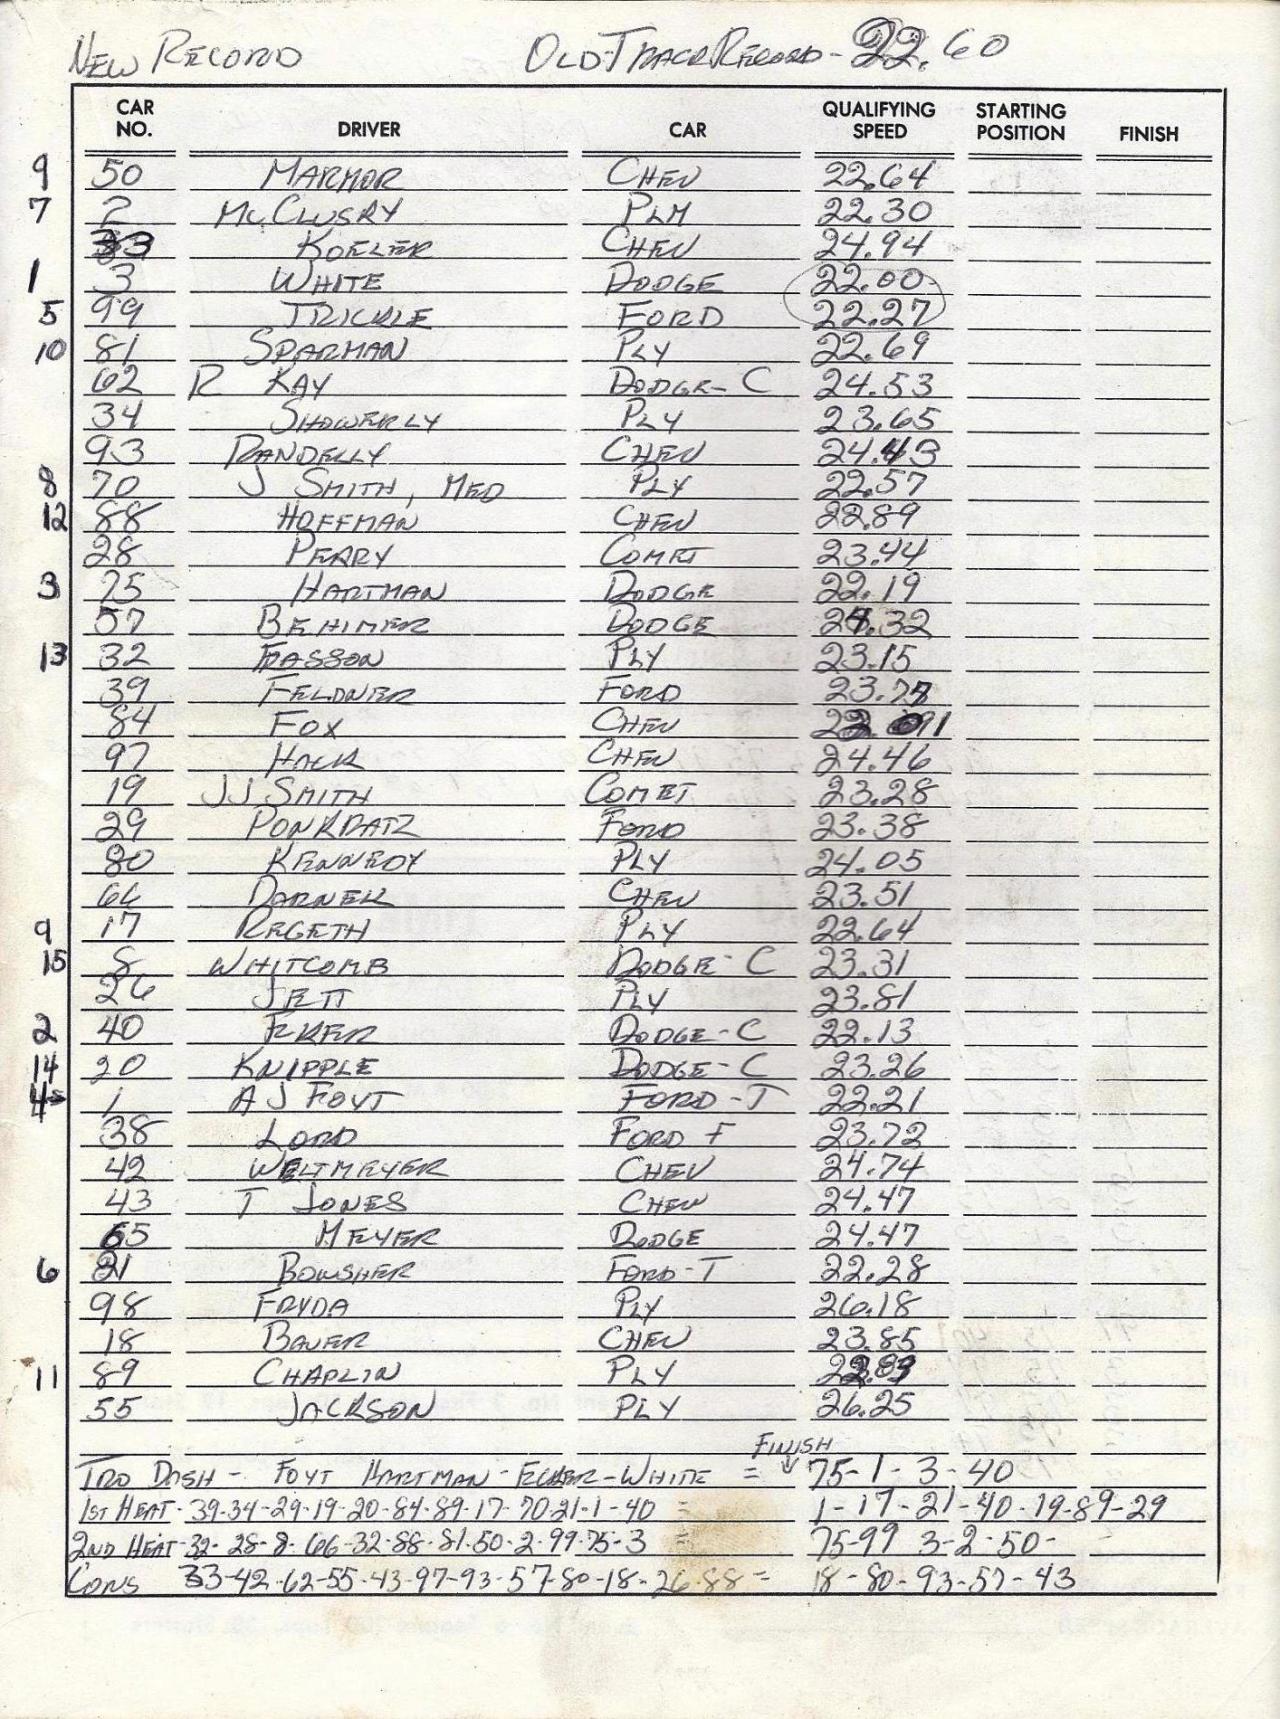 NEW RECORD OLD TRACK RECORD - 22.60
CAR NO. DRIVER CAR QUALIFYING SPEED STARTING POSITION FINISH
9 50 MARMOR CHEV 22.64
7 2 McCLUSRY PLM 22.30
33 KOELER CHEV 24.94
1 3 WHITE DODGE 22.00
5 99 TRICKLE FORD 22.27
10 81 SPARMAN PLY 22.69
62 R KAY DODGE-C 24.53
34 SHOWERLY PLY 23.65
93 RANDELLY CHEV 24.43
8 70 J SMITH, MED PLY 22.57
12 88 HOFFMAN CHEV 22.89
28 PERRY COMET 23.44
3 75 HARTMAN DODGE 22.19
57 BEHIMER DODGE 24.32
13 32 HASSON PLY 23.15
39 FELDNER FORD 23.77
84 FOX CHEV
97 HACK CHEV 24.46
19 JJ SMITH COMET 23.28
29 PONKRATZ FORD 23.38
80 KENNEDY PLY 24.05
66 DARNER CHEV 23.51
9 17 REGETH PLY 22.64
15 8 WHITCOMB DODGE-C 23.31
26 JETT PLY 23.81
2 40 EKER DODGE-C 22.13
14 20 KNIPPLE DODGE-C 23.26
4 1 AJ FOYT FORD-T 22.21
38 LORD FORD F 23.72
42 WELTMEYER CHEV 24.74
43 T JONES CHEV 24.47
65 MEYER DODGE 24.47
6 21 BOWSHER FORD-T 22.28
98 FRYDA PLY 26.18
18 BAUER CHEV 23.85
11 89 CHAPLIN PLY
55 JACKSON PLY 26.25
FINISH
TRO DASH - FOYT HARTMAN-ECKER-WHITE = 75-1-3-40
1ST HEAT-39-34-29-19-20-84-89-17-70-21-1-40 = 1-17-21-40-19-89-29
2ND HEAT-32-28-8-66-32-88-81-50-2-99-75-3 = 75-99 3-2-50-
CONS 33-42-62-55-43-97-93-57-80-18-26-88= 18-80-93-57-43